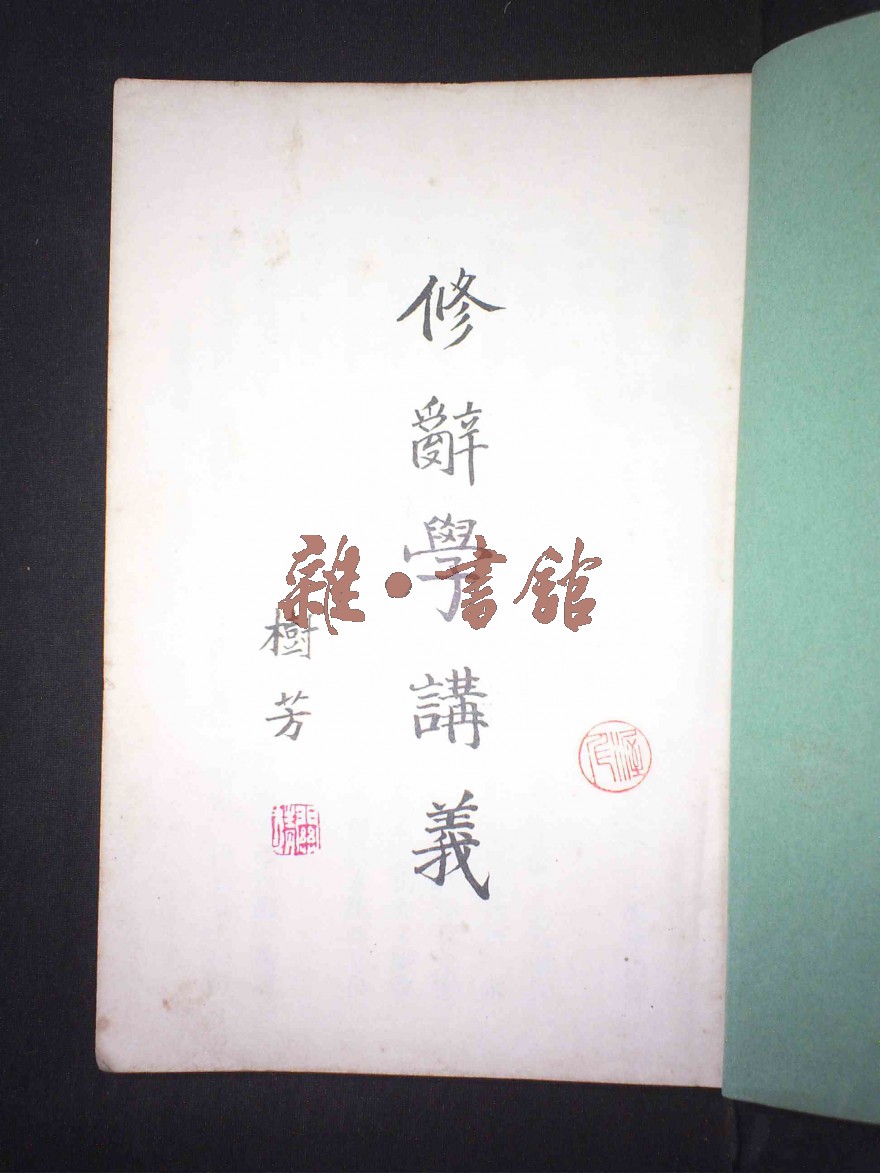 修辭學講義
樹芳
雜·書館